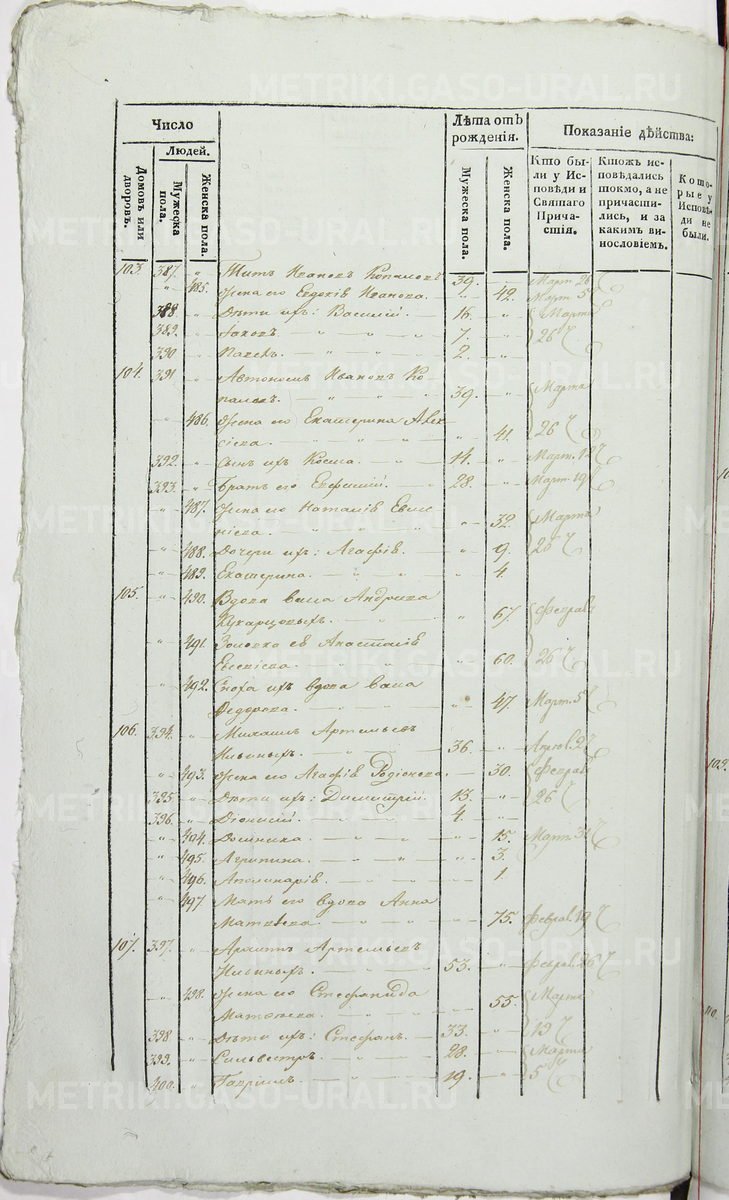 METRIKI.GASO-URAL.RU
Число
Людей.
Домовъ или дворовъ.
Мужеска пола.
Женска пола.
Лѣта отъ рожденія.
Мужеска пола.
Женска пола.
Показаніе дѣйства:
Кто бы-
ли у Ис-
повѣди и
Святаго
Прича-
стія.
Ктожъ ис-
повѣдались
токмо, а не
причасти-
лись, и за
какимъ ви-
нословіемъ.
Кото-
рые у
Исповѣ-
ди не
были.
103. 387. " Титъ Ивановъ Копаловъ 39. Март. 26
" 485. Жена его Евдокія Иванова. " 42. Март. 5
388. " Дѣти ихъ: Василій. 16. " Марта
389. " Іаковъ. " " " 7. " 26
390 " Павелъ. " " 2. "
104. 391 " Автономъ Ивановъ Ко-
паловъ. " " 39. " Марта
" 486. Жена его Екатерина Алек-
сіева. " " " " 41. 26
392. " Сынъ ихъ Косма. " 14. " Март. 12
393. " Братъ его Евфимій. " 28. " Март. 19
" 487. Жена его Наталія Евсе-
віева. " " " 32. Марта
" 488. Дочери ихъ: Агафія. " 9. 26
" 489. Екатерина. " " " 4.
105. " 490. Вдова Андреева
" 67. Феврал
" 491. Золовка ея Анастасія
Евсевіева. " " " 60. 26
" 492. Сноха ихъ вдова
Федорова. " " 47. Март. 5
106. 394. " Михаилъ Артемьевъ
Ильиныхъ. " " 36. "
" 493. Жена его Агафія Родіонова. 30. Феврал
395. " Дѣти ихъ: Димитрій. 13. " 26
396. " Діонисій. " " 4 "
" 494. Домника. " " " 15. Март.
" 495. Агрипина. " " " 3.
" 496. Аполинарія. " " 1.
" 497 Мать его вдова Анна
Матвѣева. " " 75. Феврал. 19
107. 397. " Артемьевъ
Ильиныхъ. " " 53. " Феврал. 26
" 498. Жена его Стефанида
Матвѣева. " " 55. Марта
398. " Дѣти ихъ: Стефанъ. 33. " 19
399. " Сильвестръ. " 28. " Марта
400. " Гавріилъ. " " 19. " 5